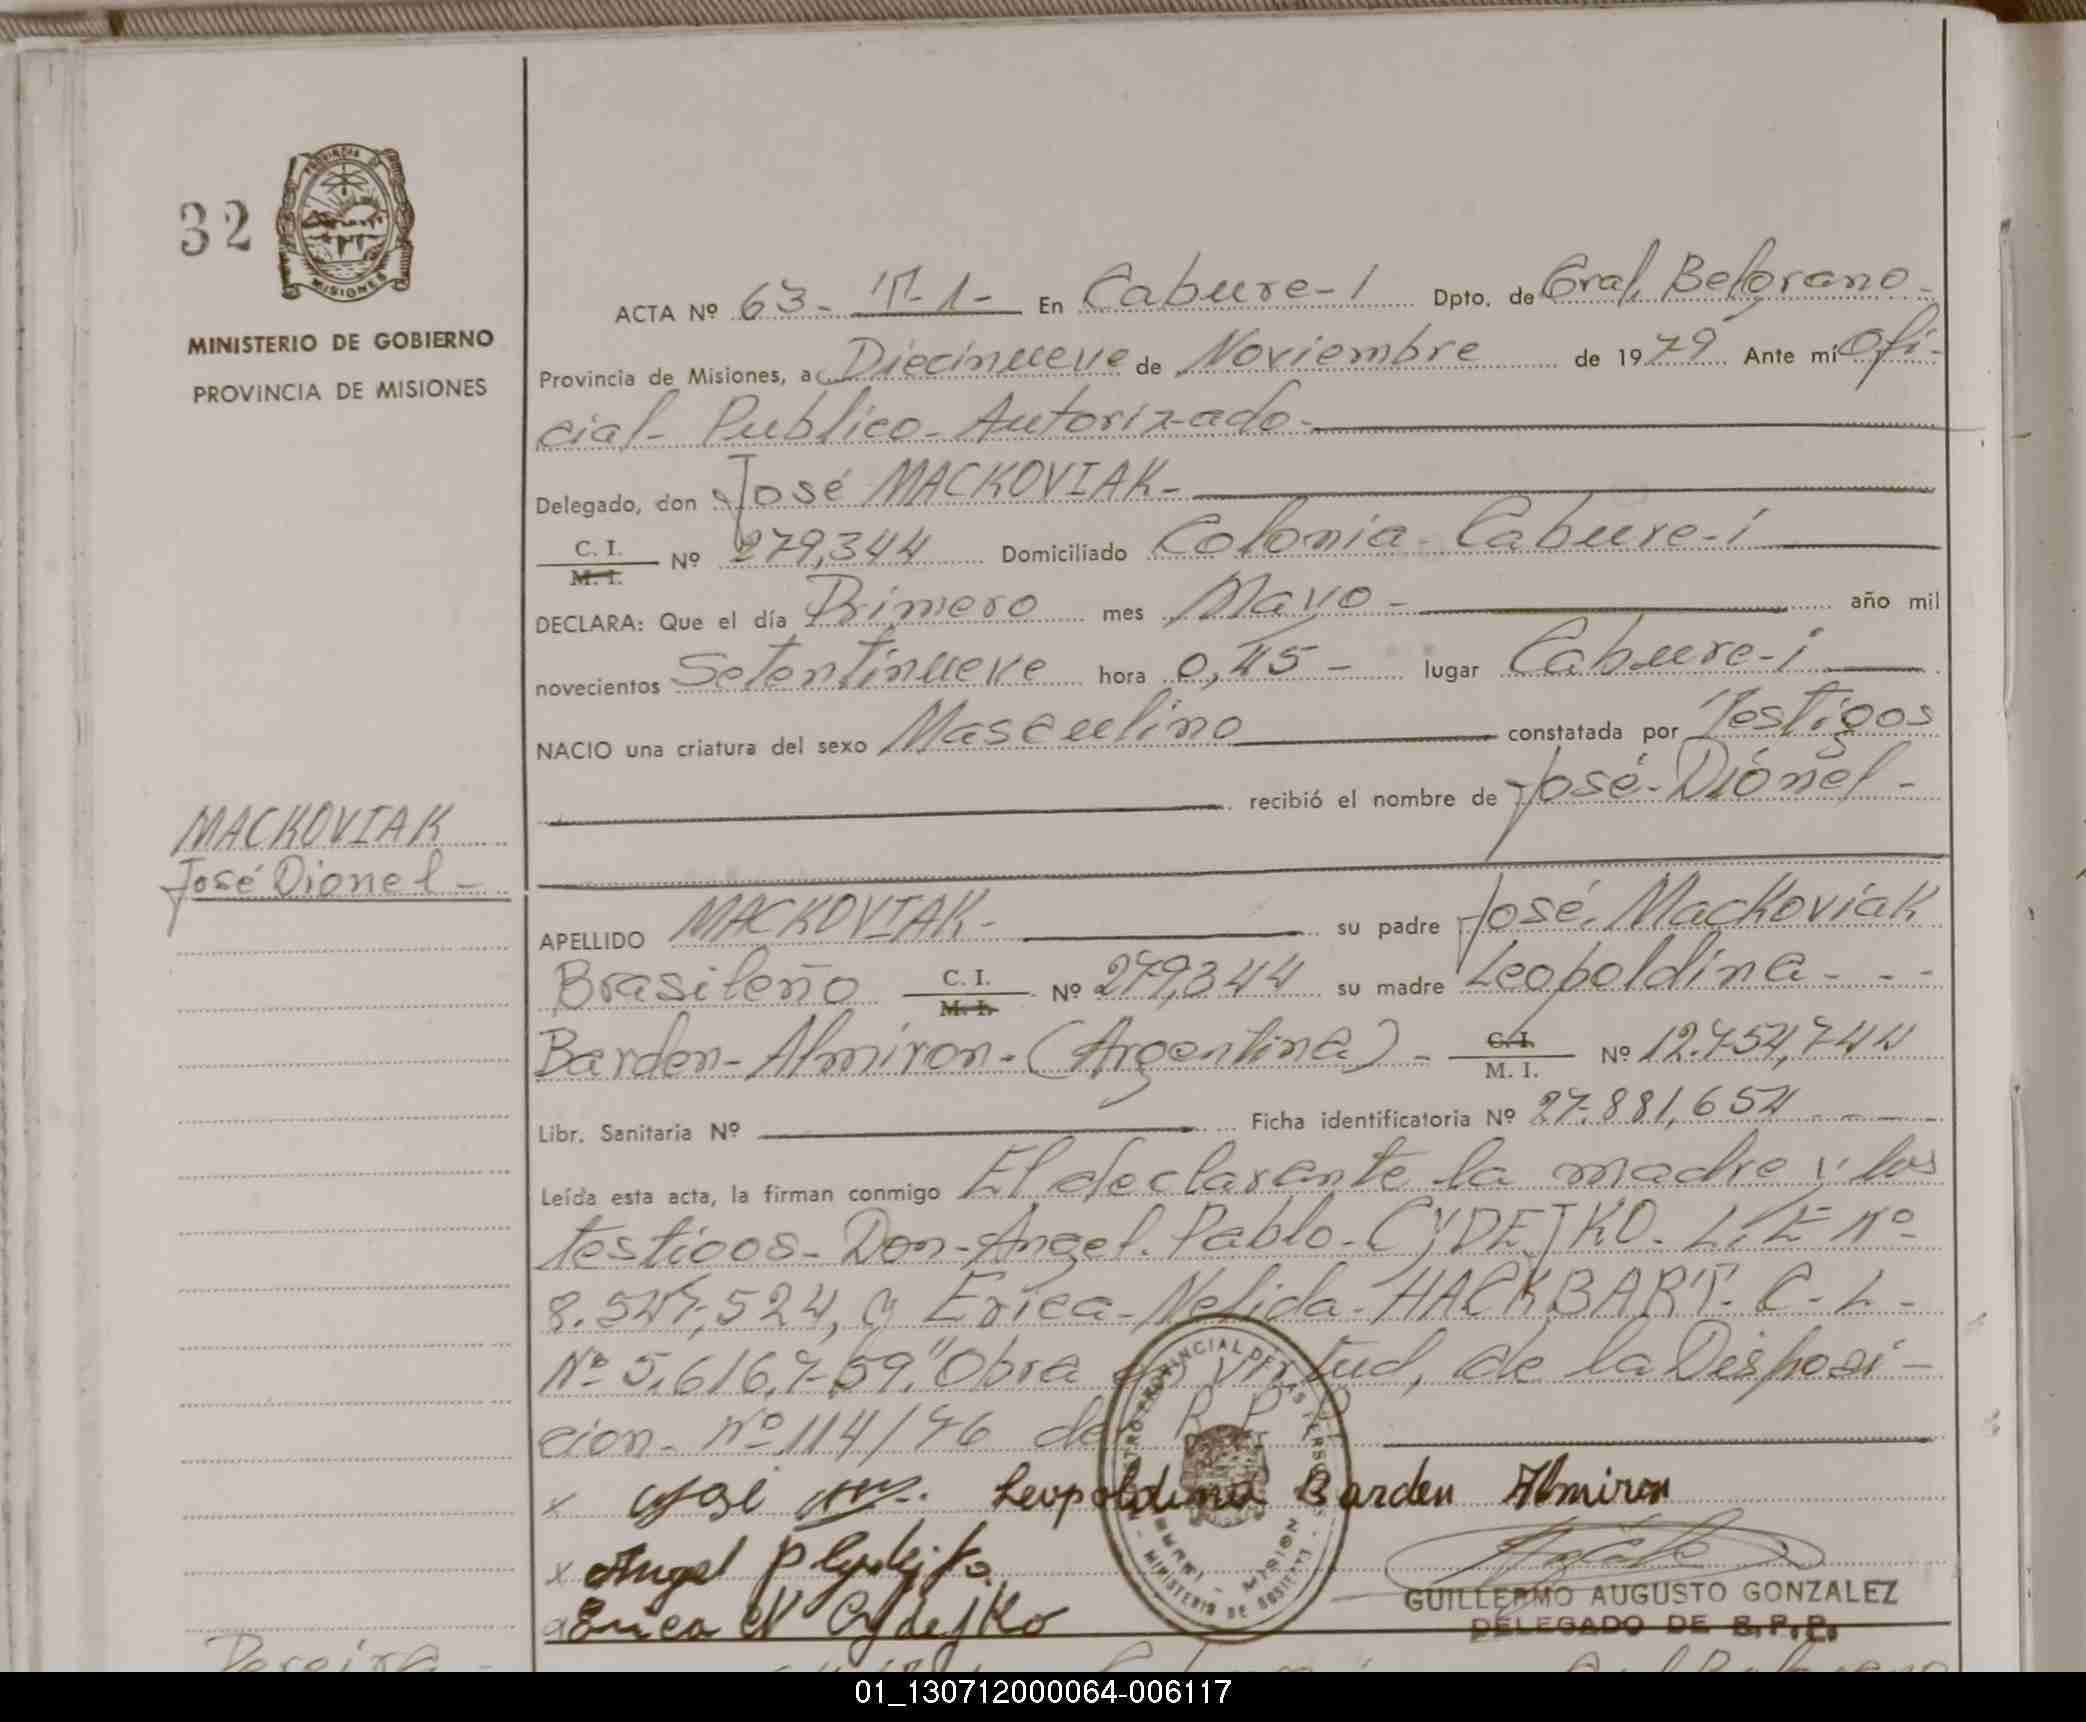 32
PROVINCIA
MISIONES
MINISTERIO DE GOBIERNO
PROVINCIA DE MISIONES
ACTA Nº 63- T-1- En Cabure-I Dpto. de Gral. Belgrano-
Provincia de Misiones, a Diecinueve de Noviembre de 1979 Ante mí Ofi-
cial- Publico- Autorizado-
Delegado, don José MACKOVIAK-
C. I. M. I. Nº 279,344 Domiciliado Colonia- Cabure-i
DECLARA: Que el día Primero mes Mayo- año mil
novecientos Setentinueve hora 0,45- lugar Cabure-i
NACIO una criatura del sexo Masculino constatada por Testigos
recibió el nombre de José-Dionel-
MACKOVIAK
José Dionel-
APELLIDO MACKOVIAK- su padre José Mackoviak
Brasileño C. I. M. I. Nº 279,344 su madre Leopoldina- - -
Barden-Almiron-(Argentina)- C. I. M. I. Nº 12.754,744
Libr. Sanitaria Nº Ficha identificatoria Nº 27.881,654
Leída esta acta, la firman conmigo El declarante la madre y los
testigos- Don-Angel. Pablo- CYDEJKO. L.E Nº
8.547,524, y Erica-Nelida-HACKBART- C-I-
Nº 5,616,759."Obra en Virtud, de la Disposi-
cion- Nº 114/76 del R P P
x José Leopoldina Barden Almiron
x Angel P Cydejko.
Erica N Cydejko
GUILLERMO AUGUSTO GONZALEZ
DELEGADO DE R.P.P.
Pereira-
01_130712000064-006117